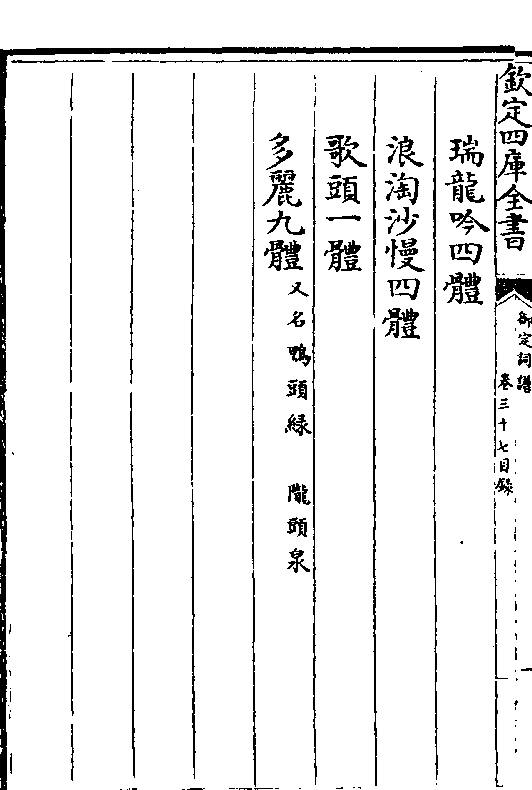 欽定四庫全書
御定詞譜
卷三十七目錄
瑞龍吟四體
浪淘沙慢四體
歌頭一體
多麗九體 又名鴨頭綠 隴頭泉